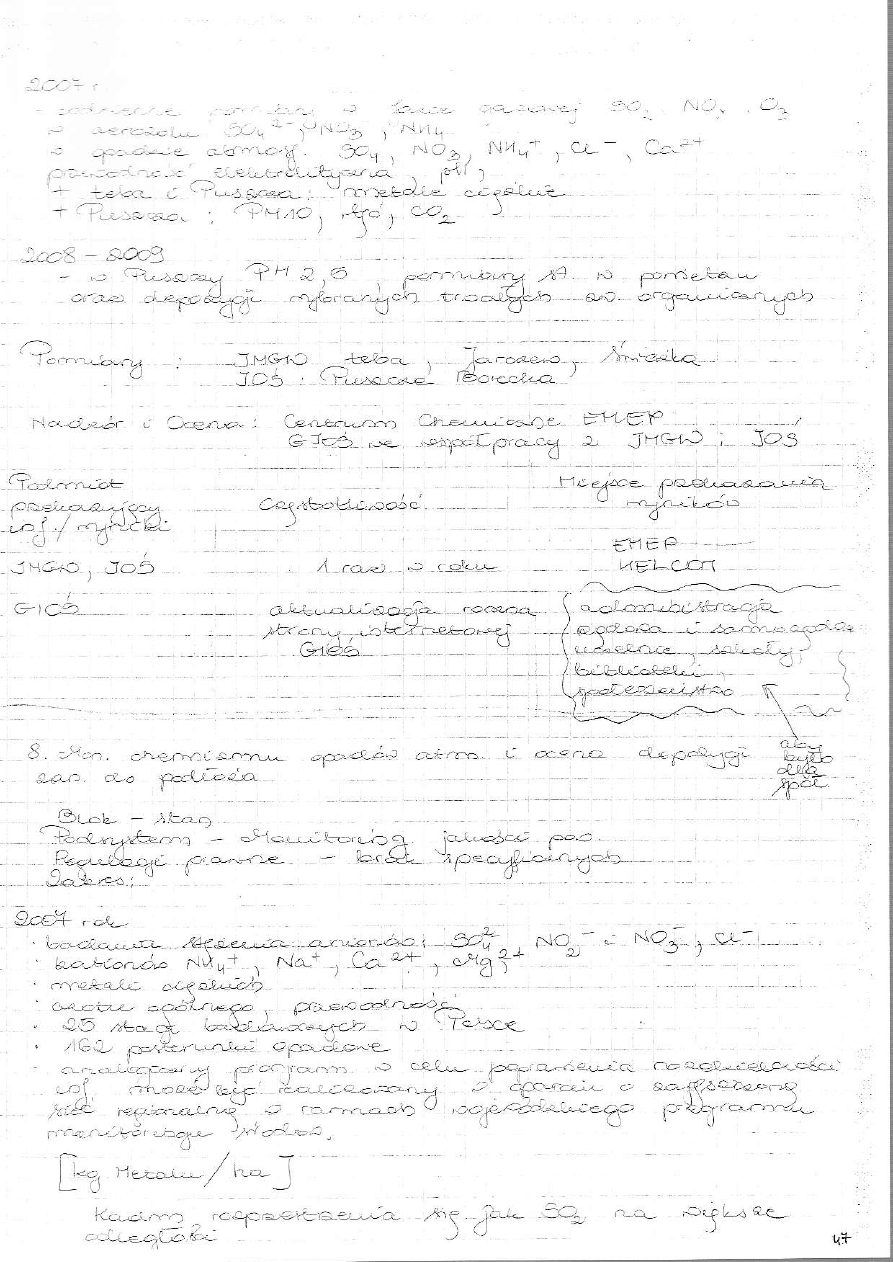 2007 r
- codzienne pomiary w fazie gazowej SO2 NO2 O3
w aerozolu SO4 2-, NO3, NH4
w opadzie atmosf. SO4, NO3, NH4+, Cl-, Ca2+
przewodność elektrolityczna, pH,
+ Łeba i Puszcza: metale ciężkie
+ Puszcza: PM10, Hg, CO2
2008 - 2009
- w Puszczy PM 2,5 pomiary w powietrzu
oraz depozycji wybranych trwałych zw. organicznych
Pomiary : IMGW Łeba, Jarczew, Śnieżka
IOŚ: Puszcza Borecka
Nadzór i Ocena: Centrum Chemiczne EMEP
GIOŚ we współpracy z IMGW i IOŚ
Podmiot Miejsce przekazania
przekazujący Częstotliwość wyników
inf./wyniki
EMEP
IMGW, IOŚ 1 raz w roku HELCOM
GIOŚ aktualizacja roczna administracja
strony internetowej rządowa i samorządowa
GIOŚ uczelnie, szkoły,
biblioteki,
społeczeństwo
8. Mon. chemizmu opadów atm. i ocena depozycji aby
zan. do podłoża było
dla
społ.
Blok - stan
Podsystem - Monitoring jakości pow.
Regulacje prawne - brak specyficznych
Zakres:
2007 rok
· badania stężenia anionów: SO4 2- NO2- i NO3-, Cl-
· kationów NH4+, Na+, Ca2+, Mg2+
· metali ciężkich
· azotu ogólnego, przewodności
· 25 stacji badawczych w Polsce
· 162 posterunki opadowe
- analogiczny program w celu poprawienia rozdzielczości
inf. może być realizowany w oparciu o zagęszczoną
sieć regionalną w ramach wojewódzkiego programu
monitoringu środow.
[kg Metalu/ha]
Kadm rozprzestrzenia się jak SO2 na większe
odległości
47